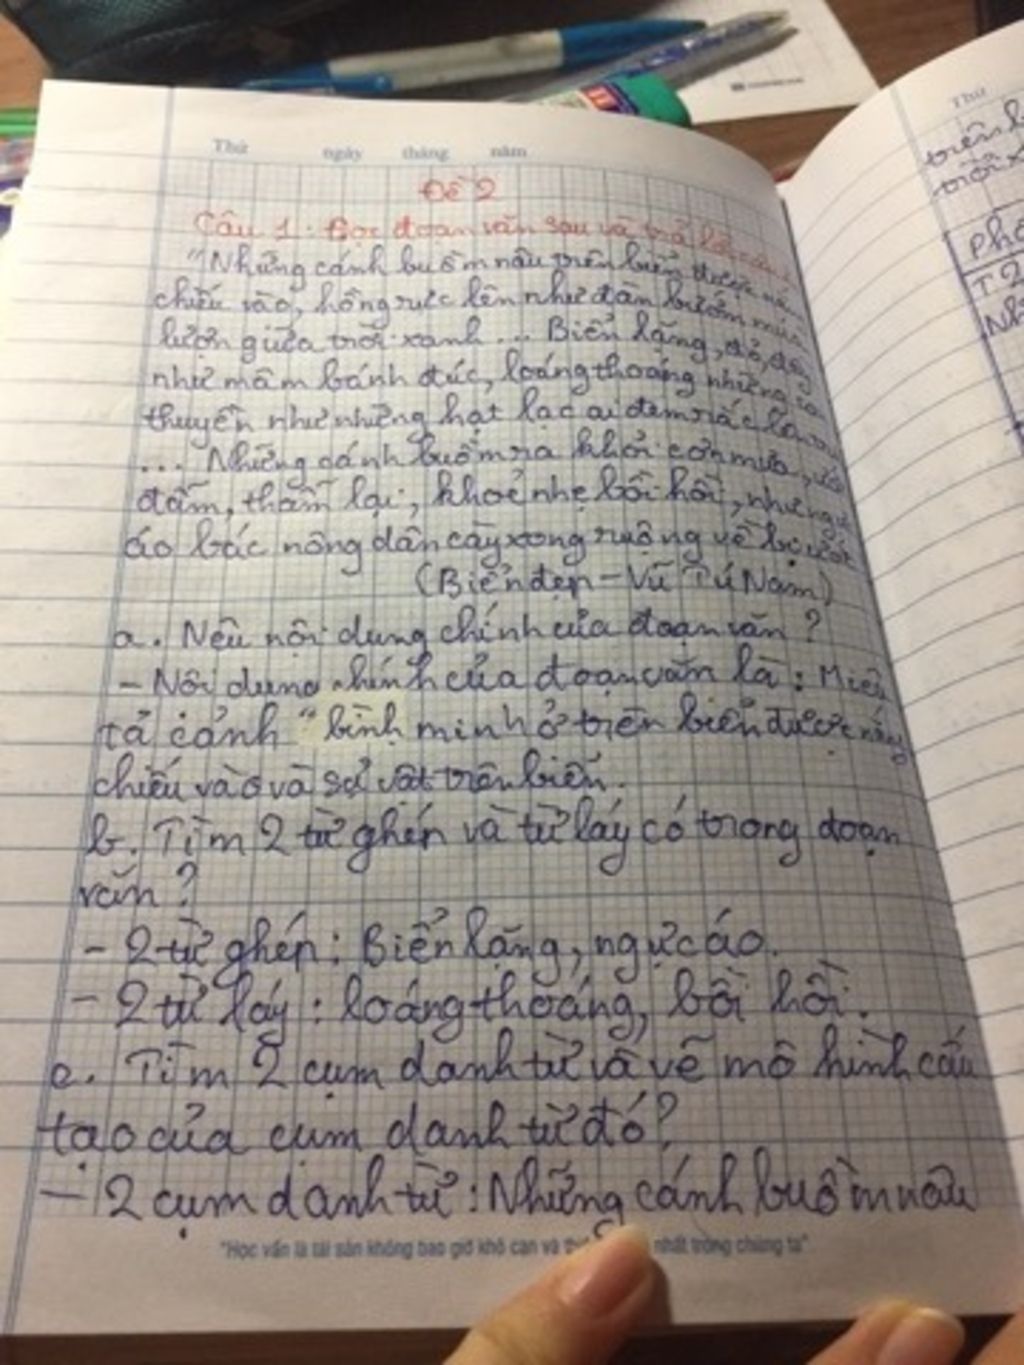 Thứ ngày tháng năm
Đề 2
Câu 1: Đọc đoạn văn sau và trả lời
"Những cánh buồm nâu trên biển được nắng
chiếu vào, hồng rực lên như đàn bướm múa
lượn giữa trời xanh ... Biển lặng, đỏ, đục
như mâm bánh đúc, loáng thoáng những con
thuyền như những hạt lạc ai đem rắc lên
... Những cánh buồm ra khỏi cơn mưa, ướt
đẫm, thẫm lại, khoẻ nhẹ bồi hồi, như ngực
áo bác nông dân cày xong ruộng về bị ướt
(Biển đẹp - Vũ Tú Nam)
a. Nêu nội dung chính của đoạn văn?
- Nội dung chính của đoạn văn là: Miêu
tả cảnh "bình minh ở trên biển được nắng
chiếu vào và sự vật trên biển.
b. Tìm 2 từ ghép và từ láy có trong đoạn
văn?
- 2 từ ghép: Biển lặng, ngực áo.
- 2 từ láy: loáng thoáng, bồi hồi.
c. Tìm 2 cụm danh từ và vẽ mô hình cấu
tạo của cụm danh từ đó?
- 2 cụm danh từ: Những cánh buồm nâu
"Học vấn là tài sản không bao giờ khô cạn và nhất trong chúng ta"
Thứ
trên
trời
Phầ
T2
Nh